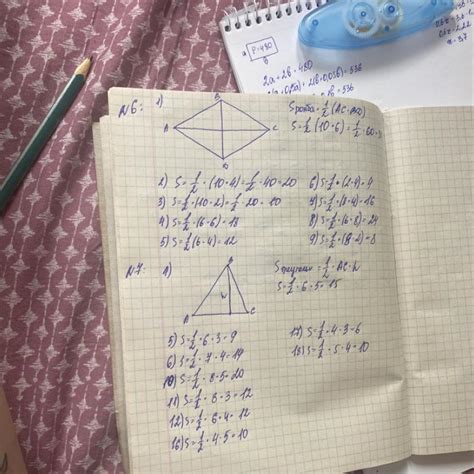 a P=480
b
2a+2b=480
N6: 1)
B
A
C
D
Sромба=1/2(AC·BD)
S=1/2(10·6)=1/2·60=
2) S=1/2·(10·4)=1/2·40=20
3) S=1/2·(10·2)=1/2·20=10
4) S=1/2·(6·6)=18
5) S=1/2(6·4)=12
6) S=1/2·(2·4)=4
7) S=1/2·(8·4)=16
8) S=1/2·(6·8)=24
9) S=1/2·(8·2)=8
N7: 1)
B
h
A
C
=1/2·AC·h
S=1/2·6·5=15
5) S=1/2·6·3=9
6) S=1/2·7·4=14
10) S=1/2·8·5=20
11) S=1/2·8·3=12
12) S=1/2·6·4=12
16) S=1/2·4·5=10
17) S=1/2·4·3=6
18) S=1/2·5·4=10